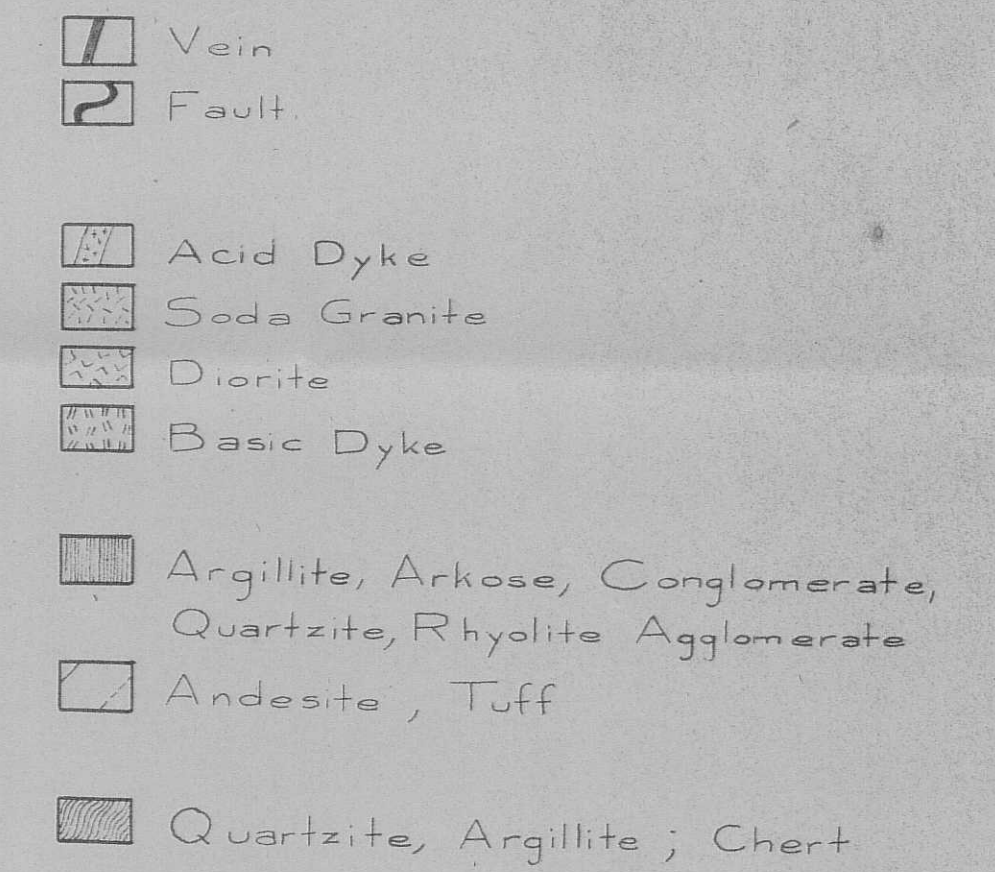 Vein
Fault.
Acid Dyke
Soda Granite
Diorite
Basic Dyke
Argillite, Arkose, Conglomerate,
Quartzite, Rhyolite Agglomerate
Andesite, Tuff
Quartzite, Argillite; Chert